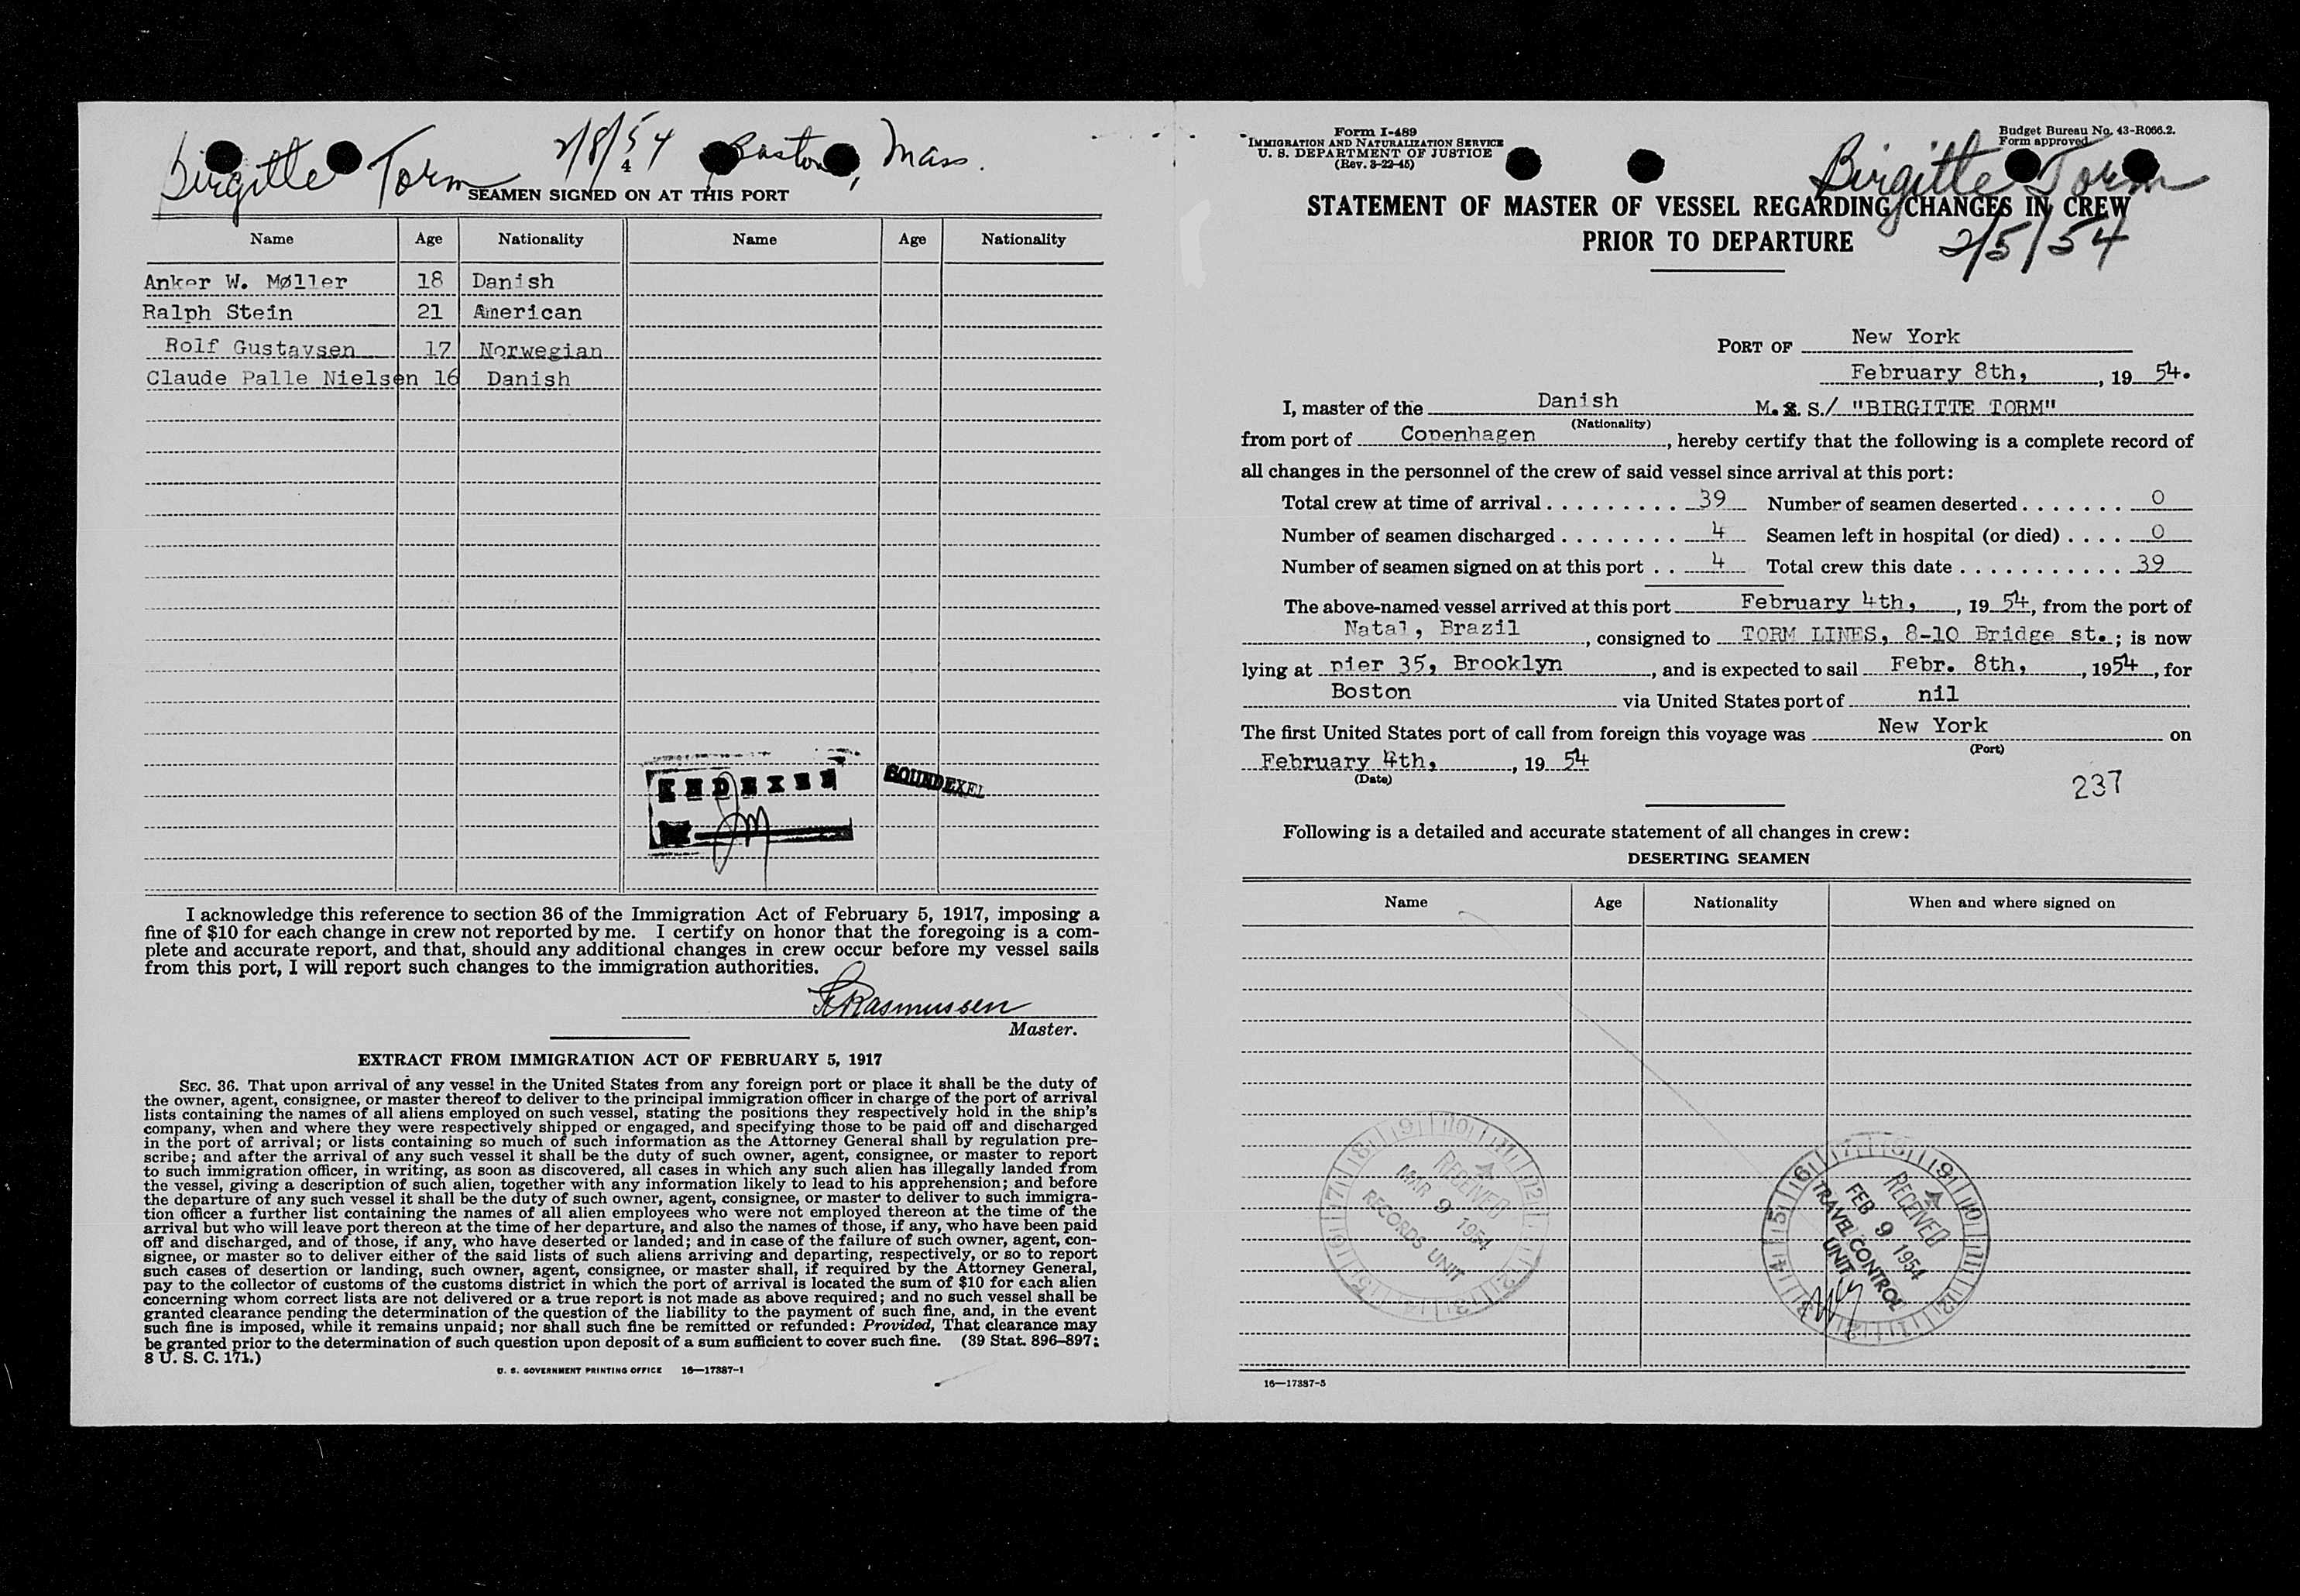 Birgitte Torm 2/8/54 Boston, Mass.
4
SEAMEN SIGNED ON AT THIS PORT
Name Age Nationality Name Age Nationality
Anker W. Møller 18 Danish
Ralph Stein 21 American
Rolf Gustavsen 17 Norwegian
Claude Palle Nielsen 16 Danish
INDEXED
SOUNDEXED
I acknowledge this reference to section 36 of the Immigration Act of February 5, 1917, imposing a
fine of $10 for each change in crew not reported by me. I certify on honor that the foregoing is a com-
plete and accurate report, and that, should any additional changes in crew occur before my vessel sails
from this port, I will report such changes to the immigration authorities.
Rasmussen
Master.
EXTRACT FROM IMMIGRATION ACT OF FEBRUARY 5, 1917
SEC. 36. That upon arrival of any vessel in the United States from any foreign port or place it shall be the duty of
the owner, agent, consignee, or master thereof to deliver to the principal immigration officer in charge of the port of arrival
lists containing the names of all aliens employed on such vessel, stating the positions they respectively hold in the ship's
company, when and where they were respectively shipped or engaged, and specifying those to be paid off and discharged
in the port of arrival; or lists containing so much of such information as the Attorney General shall by regulation pre-
scribe; and after the arrival of any such vessel it shall be the duty of such owner, agent, consignee, or master to report
to such immigration officer, in writing, as soon as discovered, all cases in which any such alien has illegally landed from
the vessel, giving a description of such alien, together with any information likely to lead to his apprehension; and before
the departure of any such vessel it shall be the duty of such owner, agent, consignee, or master to deliver to such immigra-
tion officer a further list containing the names of all alien employees who were not employed thereon at the time of the
arrival but who will leave port thereon at the time of her departure, and also the names of those, if any, who have been paid
off and discharged, and of those, if any, who have deserted or landed; and in case of the failure of such owner, agent, con-
signee, or master so to deliver either of the said lists of such aliens arriving and departing, respectively, or so to report
such cases of desertion or landing, such owner, agent, consignee, or master shall, if required by the Attorney General,
pay to the collector of customs of the customs district in which the port of arrival is located the sum of $10 for each alien
concerning whom correct lists are not delivered or a true report is not made as above required; and no such vessel shall be
granted clearance pending the determination of the question of the liability to the payment of such fine, and, in the event
such fine is imposed, while it remains unpaid; nor shall such fine be remitted or refunded: Provided, That clearance may
be granted prior to the determination of such question upon deposit of a sum sufficient to cover such fine. (39 Stat. 896-897;
8 U. S. C. 171.)
U. S. GOVERNMENT PRINTING OFFICE 16—17387-1
Form I-489
IMMIGRATION AND NATURALIZATION SERVICE
U. S. DEPARTMENT OF JUSTICE
(Rev. 3-22-45)
Budget Bureau No. 43-R066.2.
Form approved
Birgitte Torm
2/5/54
STATEMENT OF MASTER OF VESSEL REGARDING CHANGES IN CREW
PRIOR TO DEPARTURE
PORT OF New York
February 8th, , 19 54.
I, master of the Danish M. S./ "BIRGITTE TORM"
(Nationality)
from port of Copenhagen , hereby certify that the following is a complete record of
all changes in the personnel of the crew of said vessel since arrival at this port:
Total crew at time of arrival . . . . . . . . . 39 Number of seamen deserted . . . . . . . 0
Number of seamen discharged . . . . . . . . 4 Seamen left in hospital (or died) . . . . 0
Number of seamen signed on at this port . . 4 Total crew this date . . . . . . . . . . . 39
The above-named vessel arrived at this port February 4th, , 19 54, from the port of
Natal, Brazil , consigned to TORM LINES, 8-10 Bridge st. ; is now
lying at pier 35, Brooklyn , and is expected to sail Febr. 8th, , 1954 , for
Boston via United States port of nil
The first United States port of call from foreign this voyage was New York on
(Port)
February 4th, , 19 54
(Date)
237
Following is a detailed and accurate statement of all changes in crew:
DESERTING SEAMEN
Name Age Nationality When and where signed on
RECEIVED
MAR 9 1954
RECORDS UNIT
RECEIVED
FEB 9 1954
TRAVEL CONTROL
UNIT
16—17387-5